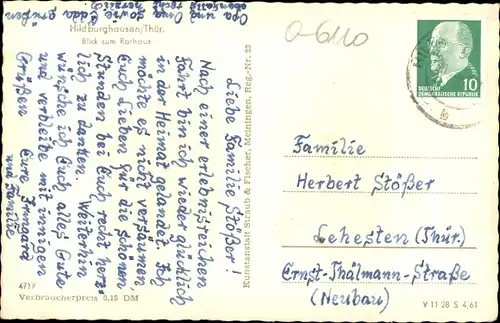 Hildburghausen/Thür.
Blick zum Rathaus
Opa und Oma sowie Edda grüßen
ebenfalls recht herzlich
Liebe Familie Stößer!
Nach einer erlebnisreichen
Fahrt bin ich wieder glücklich
in der Heimat gelandet. Ich
möchte es nicht versäumen,
Euch Lieben für die schönen
Stunden, bei Euch recht herz-
lich zu danken. Weiterhin
wünsche ich Euch alles Gute
und verbleibe mit innigen
Grüßen Eure Irmgard
und Familie
4717
Verbraucherpreis 0,15 DM
Kunstanstalt Straub & Fischer, Meiningen, Reg.-Nr. 23
0-6110
DEUTSCHE
DEMOKRATISCHE REPUBLIK
10
b
Familie
Herbert Stößer
Lehesten (Thür.)
Ernst-Thälmann-Straße
(Neubau)
V 11 28 S 4,61